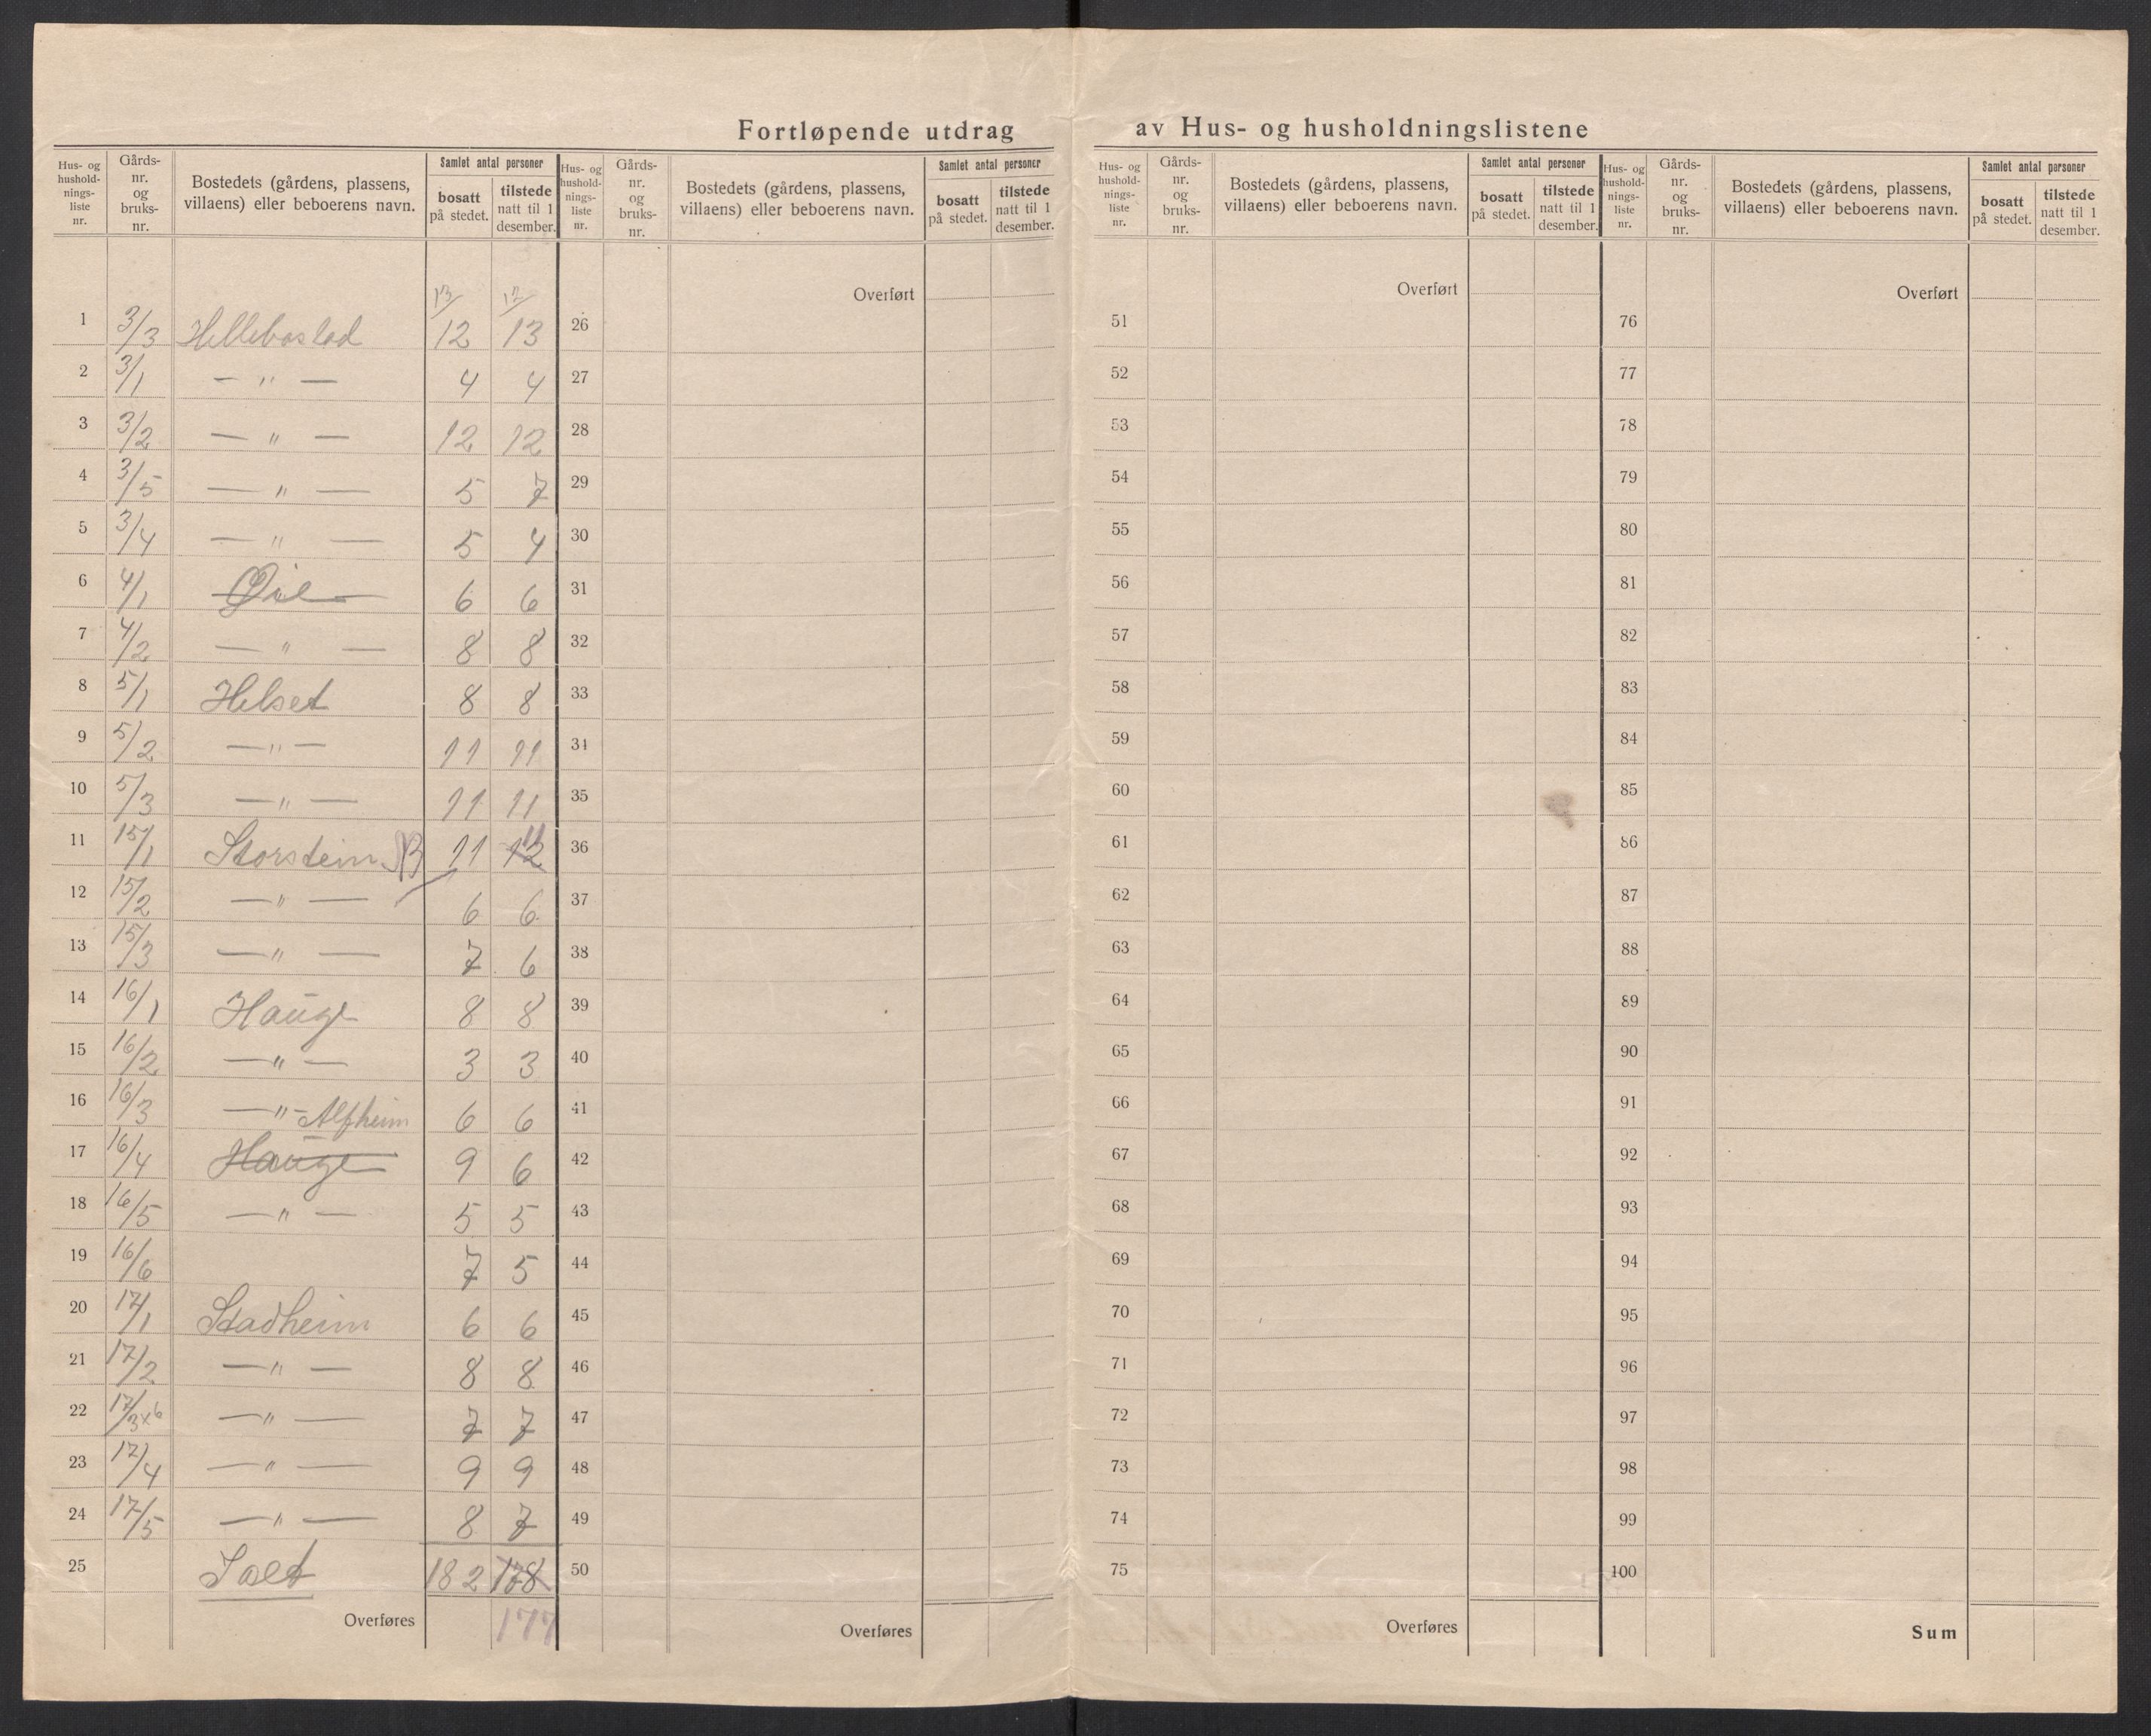 Fortløpende utdrag av Hus- og husholdningslistene
Hus- og hushold- nings- liste nr. | Gårds- nr. og bruks- nr. | Bostedets (gårdens, plassens, villaens) eller beboerens navn. | Samlet antal personer | bosatt på stedet. | tilstede natt til 1 desember.
Hus- og hushold- nings- liste nr. | Gårds- nr. og bruks- nr. | Bostedets (gårdens, plassens, villaens) eller beboerens navn. | Samlet antal personer | bosatt på stedet. | tilstede natt til 1 desember.
Hus- og hushold- nings- liste nr. | Gårds- nr. og bruks- nr. | Bostedets (gårdens, plassens, villaens) eller beboerens navn. | Samlet antal personer | bosatt på stedet. | tilstede natt til 1 desember.
Hus- og hushold- nings- liste nr. | Gårds- nr. og bruks- nr. | Bostedets (gårdens, plassens, villaens) eller beboerens navn. | Samlet antal personer | bosatt på stedet. | tilstede natt til 1 desember.
13/ 12/ Overført Overført Overført
1 3/3 Hellebostad 12 13 26 51 76
2 3/1 — " — 4 4 27 52 77
3 3/2 — " — 12 12 28 53 78
4 3/5 — " — 5 7 29 54 79
5 3/4 — " — 5 4 30 55 80
6 4/1 Øie 6 6 31 56 81
7 4/2 — " — 8 8 32 57 82
8 5/1 Helset 8 8 33 58 83
9 5/2 — " — 11 11 34 59 84
10 5/3 — " — 11 11 35 60 85
11 15/1 Storstein 11 12 11 36 61 86
12 15/2 — " — 6 6 37 62 87
13 15/3 — " — 7 6 38 63 88
14 16/1 Hauge 8 8 39 64 89
15 16/2 — " — 3 3 40 65 90
16 16/3 — " – Alfheim 6 6 41 66 91
17 16/4 Hauge 9 6 42 67 92
18 16/5 — " — 5 5 43 68 93
19 16/6 7 5 44 69 94
20 17/1 Stadheim 6 6 45 70 95
21 17/2 — " — 8 8 46 71 96
22 17/3x6 — " — 7 7 47 72 97
23 17/4 — " — 9 9 48 73 98
24 17/5 — " — 8 7 49 74 99
25 Ialt 182 178 50 75 100
Overføres 177 Overføres Overføres Sum